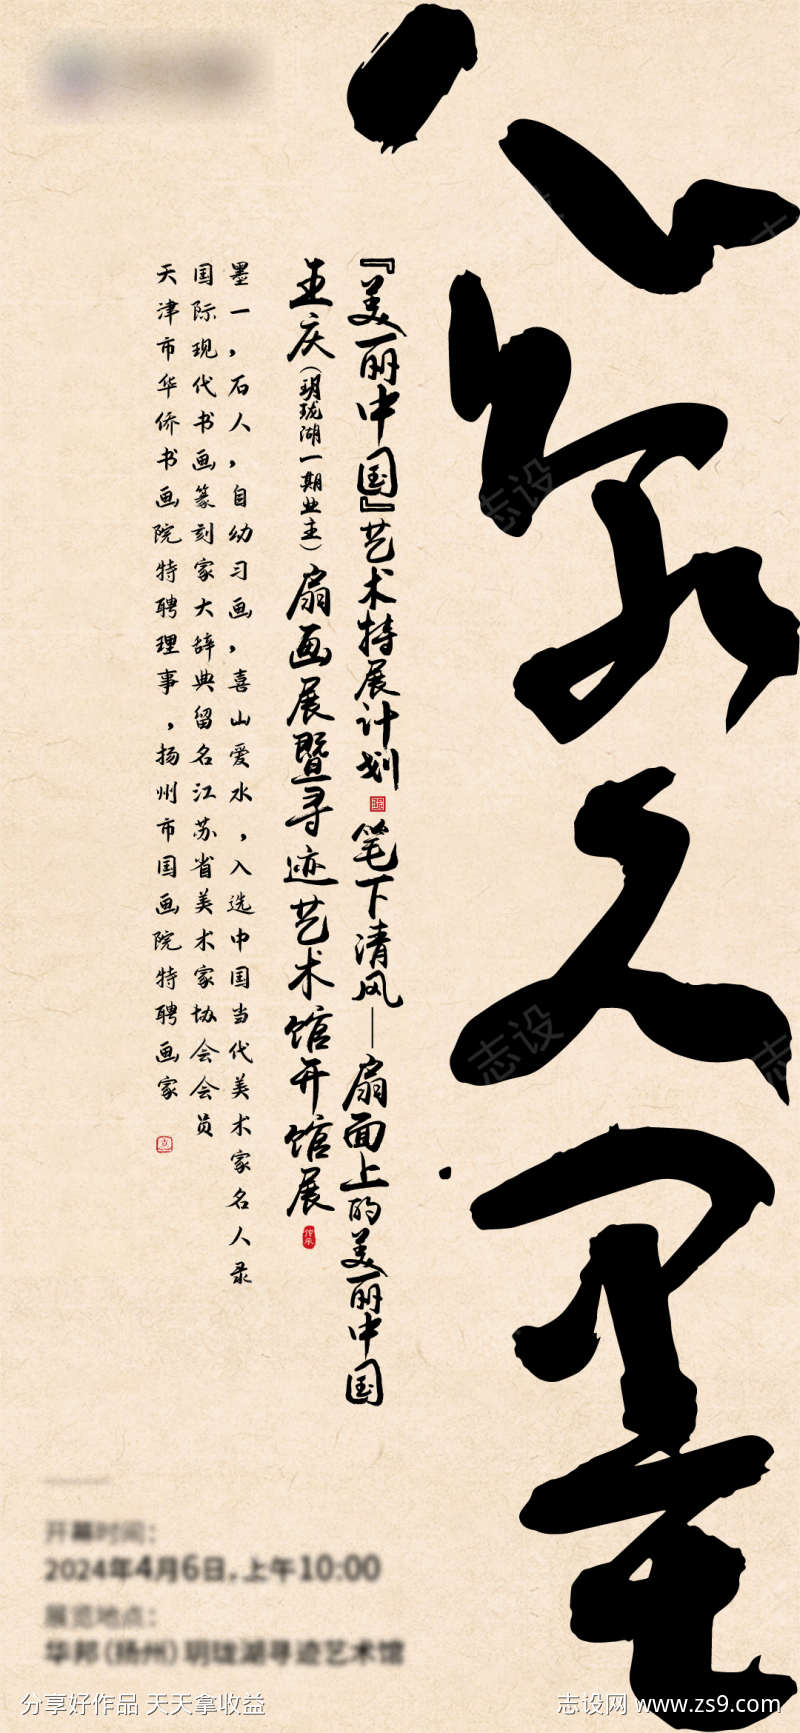 『美丽中国』艺术特展计划 笔下清风——扇面上的美丽中国
王庆(玥珑湖一期业主)扇画展暨寻迹艺术馆开馆展
墨一，石人，自幼习画，喜山爱水，入选中国当代美术家名人录
国际现代书画篆刻家大辞典留名江苏省美术家协会会员
天津市华侨书画院特聘理事，扬州市国画院特聘画家
开幕时间：
2024年4月6日，上午10:00
展览地点：
华邦(扬州)玥珑湖寻迹艺术馆
分享好作品 天天拿收益
志设网 www.zs9.com